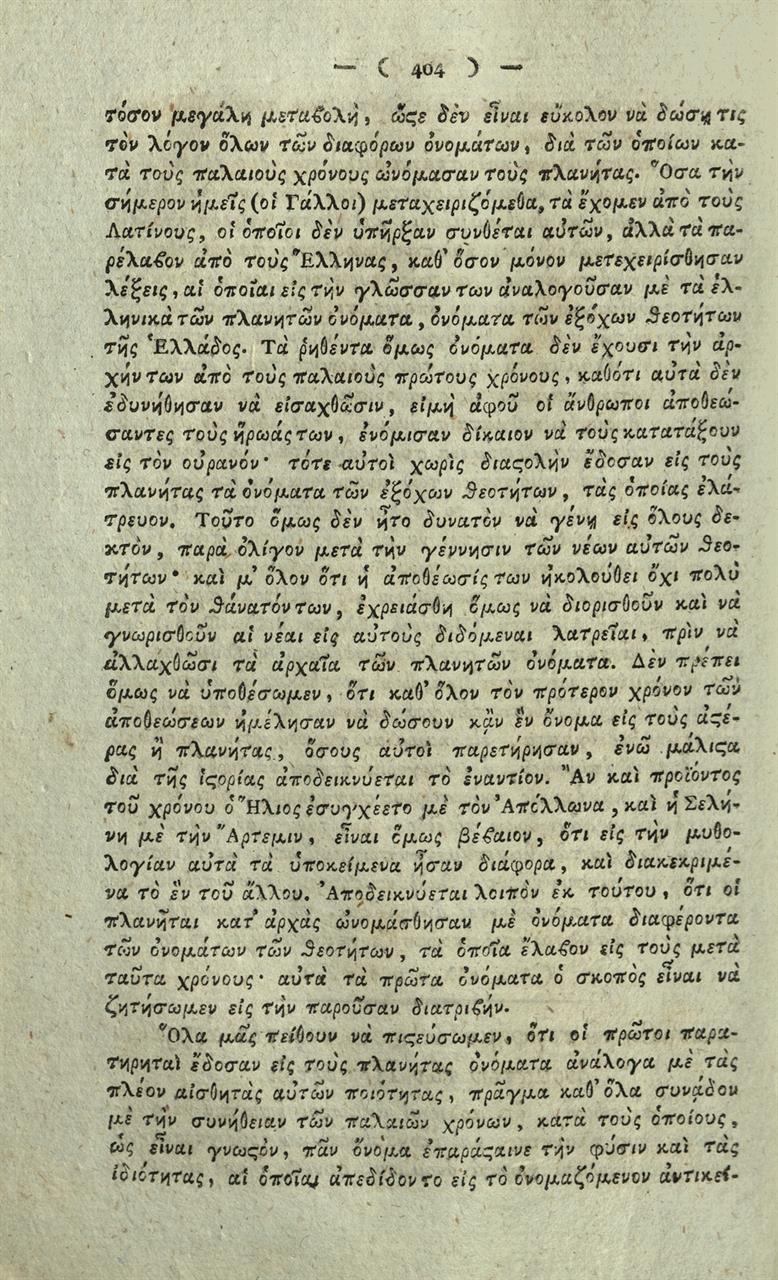 — ( 404 ) —
τόσον μεγάλη μεταβολὴ, ὥςε δὲν εἶναι εὔκολον νὰ δώσῃ τις
τὸν λόγον ὅλων τῶν διαφόρων ὀνομάτων, διὰ τῶν ὁποίων κα-
τὰ τοὺς παλαιοὺς χρόνους ὠνόμασαν τοὺς πλανήτας. Ὅσα τὴν
σήμερον ἡμεῖς (οἱ Γάλλοι) μεταχειριζόμεθα, τὰ ἔχομεν ἀπὸ τοὺς
Λατίνους, οἱ ὁποῖοι δὲν ὑπῆρξαν συνθέται αὐτῶν, ἀλλὰ τὰ πα-
ρέλαβον ἀπὸ τοὺς Ἕλληνας, καθ' ὅσον μόνον μετεχειρίσθησαν
λέξεις, αἱ ὁποῖαι εἰς τὴν γλῶσσαν των ἀναλογοῦσαν μὲ τὰ ἑλ-
ληνικὰ τῶν πλανητῶν ὀνόματα, ὀνόματα τῶν ἐξόχων θεοτήτων
τῆς Ἑλλάδος. Τὰ ῥηθέντα ὅμως ὀνόματα δὲν ἔχουσι τὴν ἀρ-
χήν των ἀπὸ τοὺς παλαιοὺς πρώτους χρόνους, καθότι αὐτὰ δὲν
ἐδυνήθησαν νὰ εἰσαχθῶσιν, εἰμὴ ἀφοῦ οἱ ἄνθρωποι ἀποθεώ-
σαντες τοὺς ἥρωάς των, ἐνόμισαν δίκαιον νὰ τοὺς κατατάξουν
εἰς τὸν οὐρανόν· τότε αὐτοὶ χωρὶς διαςολὴν ἔδοσαν εἰς τοὺς
πλανήτας τὰ ὀνόματα τῶν ἐξόχων θεοτήτων, τὰς ὁποίας ἐλά-
τρευον. Τοῦτο ὅμως δὲν ἦτο δυνατὸν νὰ γένῃ εἰς ὅλους δε-
κτὸν, παρὰ ὀλίγον μετὰ τὴν γέννησιν τῶν νέων αὐτῶν θεο-
τήτων· καὶ μ' ὅλον ὅτι ἡ ἀποθέωσίς των ἠκολούθει ὄχι πολὺ
μετὰ τὸν θάνατόν των, ἐχρειάσθη ὅμως νὰ διορισθοῦν καὶ νὰ
γνωρισθοῦν αἱ νέαι εἰς αὐτοὺς διδόμεναι λατρεῖαι, πρὶν νὰ
ἀλλαχθῶσι τὰ ἀρχαῖα τῶν πλανητῶν ὀνόματα. Δὲν πρέπει
ὅμως νὰ ὑποθέσωμεν, ὅτι καθ' ὅλον τὸν πρότερον χρόνον τῶν
ἀποθεώσεων ἠμέλησαν νὰ δώσουν κᾂν ἓν ὄνομα εἰς τοὺς ἀςέ-
ρας ἢ πλανήτας, ὅσους αὐτοὶ παρετήρησαν, ἐνῶ μάλιςα
διὰ τῆς ἱςορίας ἀποδεικνύεται τὸ ἐναντίον. Ἂν καὶ προϊόντος
τοῦ χρόνου ὁ Ἥλιος ἐσυγχέετο μὲ τὸν Ἀπόλλωνα, καὶ ἡ Σελή-
νη μὲ τὴν Ἄρτεμιν, εἶναι ὅμως βέβαιον, ὅτι εἰς τὴν μυθο-
λογίαν αὐτὰ τὰ ὑποκείμενα ἦσαν διάφορα, καὶ διακεκριμέ-
να τὸ ἓν τοῦ ἄλλου. Ἀποδεικνύεται λοιπὸν ἐκ τούτου, ὅτι οἱ
πλανῆται κατ' ἀρχὰς ὠνομάσθησαν μὲ ὀνόματα διαφέροντα
τῶν ὀνομάτων τῶν θεοτήτων, τὰ ὁποῖα ἔλαβον εἰς τοὺς μετὰ
ταῦτα χρόνους· αὐτὰ τὰ πρῶτα ὀνόματα ὁ σκοπὸς εἶναι νὰ
ζητήσωμεν εἰς τὴν παροῦσαν διατριβήν.
Ὅλα μᾶς πείθουν νὰ πιςεύσωμεν, ὅτι οἱ πρῶτοι παρα-
τηρηταὶ ἔδοσαν εἰς τοὺς πλανήτας ὀνόματα ἀνάλογα μὲ τὰς
πλέον αἰσθητὰς αὐτῶν ποιότητας, πρᾶγμα καθ' ὅλα συνᾴδον
μὲ τὴν συνήθειαν τῶν παλαιῶν χρόνων, κατὰ τοὺς ὁποίους,
ὡς εἶναι γνωςὸν, πᾶν ὄνομα ἐπαράςαινε τὴν φύσιν καὶ τὰς
ἰδιότητας, αἱ ὁποῖαι ἀπεδίδοντο εἰς τὸ ὀνομαζόμενον ἀντικεί-